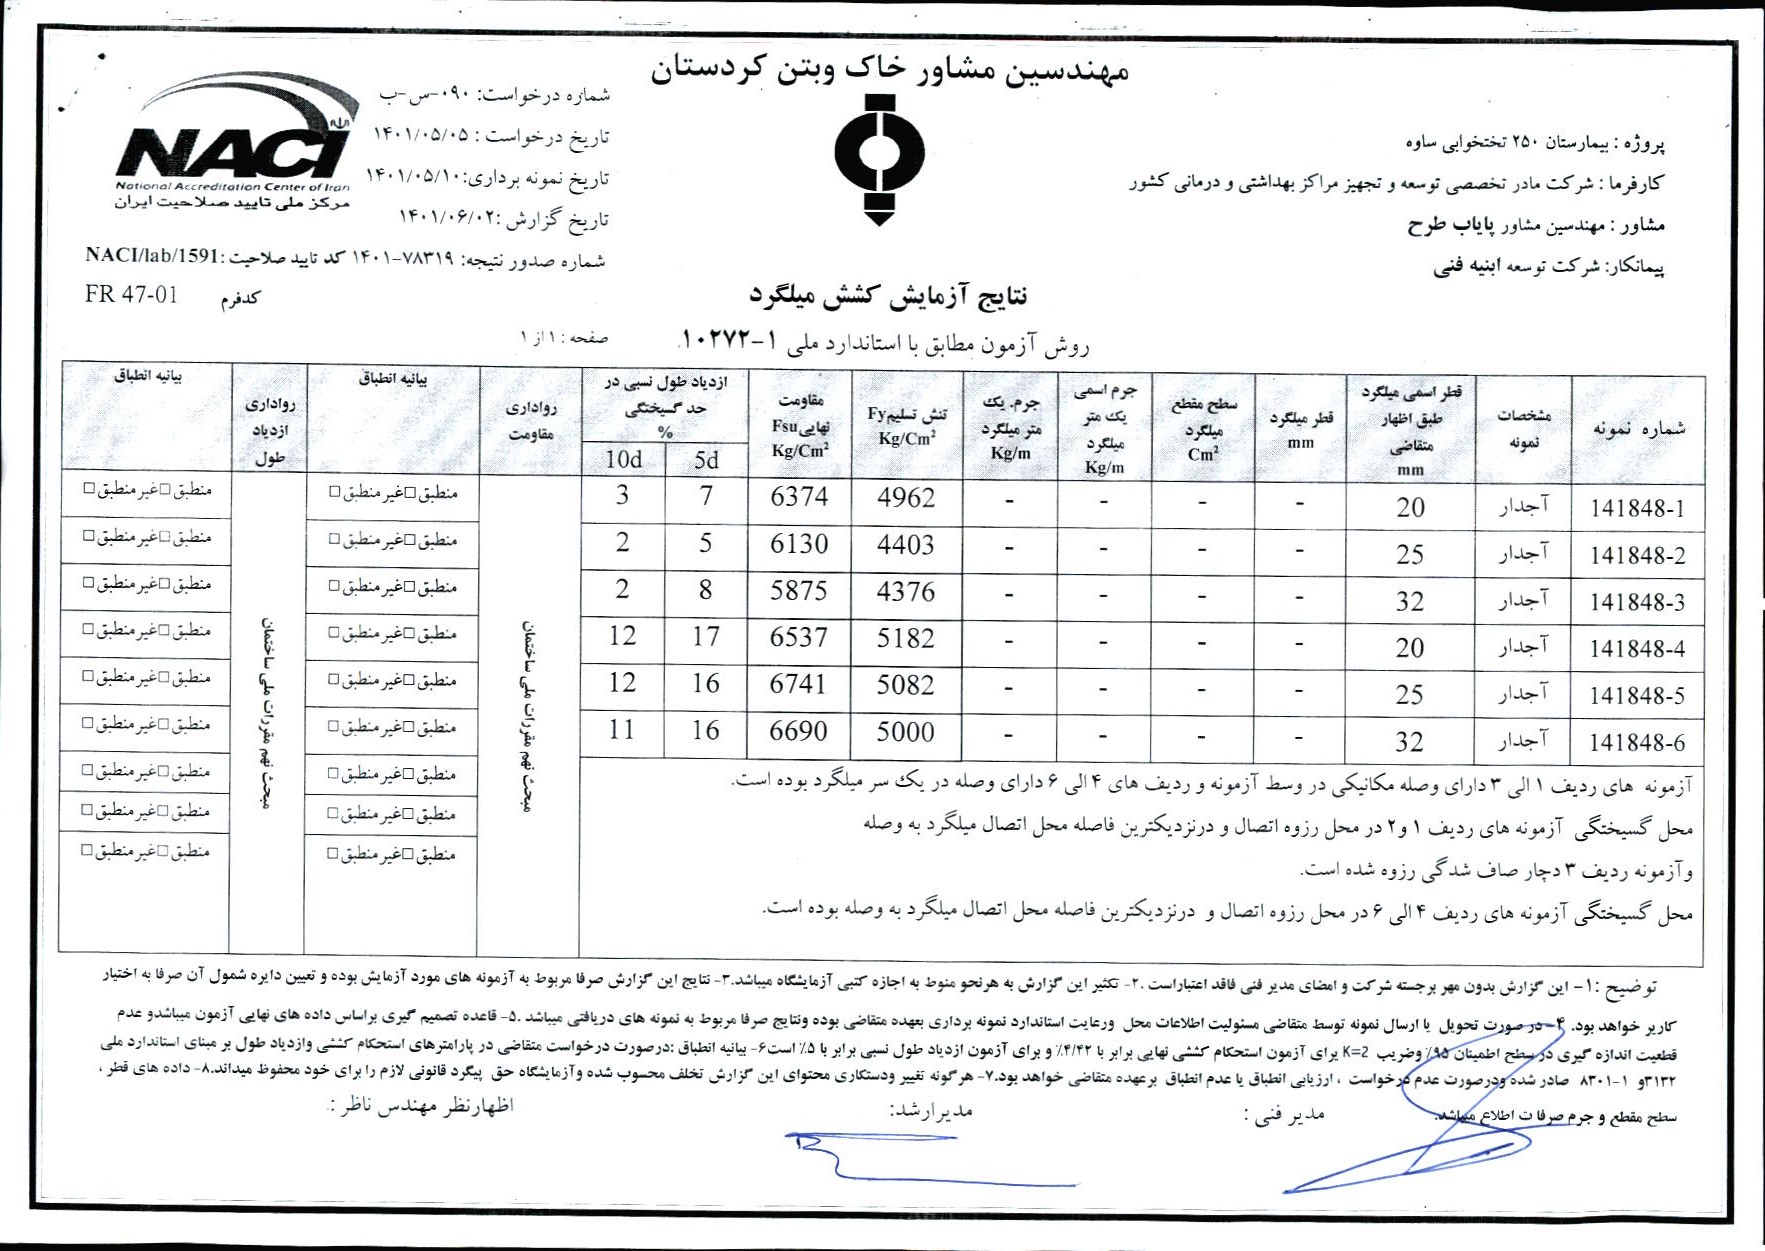 مهندسین مشاور خاک وبتن کردستان
پروژه : بیمارستان ۲۵۰ تختخوابی ساوه
کارفرما : شرکت مادر تخصصی توسعه و تجهیز مراکز بهداشتی و درمانی کشور
مشاور : مهندسین مشاور پایاب طرح
پیمانکار: شرکت توسعه ابنیه فنی
شماره درخواست: ۰۹۰-س-ب
تاریخ درخواست : ۱۴۰۱/۰۵/۰۵
تاریخ نمونه برداری:۱۴۰۱/۰۵/۱۰
تاریخ گزارش :۱۴۰۱/۰۶/۰۲
شماره صدور نتیجه: ۷۸۳۱۹-۱۴۰۱ کد تایید صلاحیت :NACI/lab/1591
کدفرم FR 47-01
NACI
National Accreditation Center of Iran
مرکز ملی تایید صلاحیت ایران
نتایج آزمایش کشش میلگرد
روش آزمون مطابق با استاندارد ملی ۱-۱۰۲۷۲
صفحه : ۱ از ۱
شماره نمونه | مشخصات نمونه | قطر اسمی میلگرد طبق اظهار متقاضی mm | قطر میلگرد mm | سطح مقطع میلگرد Cm² | جرم اسمی یک متر میلگرد Kg/m | جرم. یک متر میلگرد Kg/m | تنش تسلیم Fy Kg/Cm² | مقاومت نهایی Fsu Kg/Cm² | ازدیاد طول نسبی در حد گسیختگی % 5d 10d | رواداری مقاومت | بیانیه انطباق | رواداری ازدیاد طول | بیانیه انطباق
141848-1 آجدار 20 - - - - 4962 6374 7 3 منطبق□غیر منطبق□ منطبق□غیر منطبق□
141848-2 آجدار 25 - - - - 4403 6130 5 2 منطبق□غیر منطبق□ منطبق□غیر منطبق□
141848-3 آجدار 32 - - - - 4376 5875 8 2 منطبق□غیر منطبق□ منطبق□غیر منطبق□
141848-4 آجدار 20 - - - - 5182 6537 17 12 منطبق□غیر منطبق□ منطبق□غیر منطبق□
141848-5 آجدار 25 - - - - 5082 6741 16 12 منطبق□غیر منطبق□ منطبق□غیر منطبق□
141848-6 آجدار 32 - - - - 5000 6690 16 11 منطبق□غیر منطبق□ منطبق□غیر منطبق□
منطبق□غیر منطبق□ منطبق□غیر منطبق□
منطبق□غیر منطبق□ منطبق□غیر منطبق□
منطبق□غیر منطبق□ منطبق□غیر منطبق□
مبحث نهم مقررات ملی ساختمان
مبحث نهم مقررات ملی ساختمان
آزمونه های ردیف ۱ الی ۳ دارای وصله مکانیکی در وسط آزمونه و ردیف های ۴ الی ۶ دارای وصله در یک سر میلگرد بوده است.
محل گسیختگی آزمونه های ردیف ۱ و۲ در محل رزوه اتصال و درنزدیکترین فاصله محل اتصال میلگرد به وصله
وآزمونه ردیف ۳ دچار صاف شدگی رزوه شده است.
محل گسیختگی آزمونه های ردیف ۴ الی ۶ در محل رزوه اتصال و درنزدیکترین فاصله محل اتصال میلگرد به وصله بوده است.
توضیح :۱- این گزارش بدون مهر برجسته شرکت و امضای مدیر فنی فاقد اعتباراست .۲- تکثیر این گزارش به هرنحو منوط به اجازه کتبی آزمایشگاه میباشد.۳- نتایج این گزارش صرفا مربوط به آزمونه های مورد آزمایش بوده و تعیین دایره شمول آن صرفا به اختیار
کاربر خواهد بود. ۴- در صورت تحویل یا ارسال نمونه توسط متقاضی مسئولیت اطلاعات محل ورعایت استاندارد نمونه برداری بعهده متقاضی بوده ونتایج صرفا مربوط به نمونه های دریافتی میباشد .۵- قاعده تصمیم گیری براساس داده های نهایی آزمون میباشدو عدم
قطعیت اندازه گیری در سطح اطمینان ۹۵٪ وضریب K=2 برای آزمون استحکام کششی نهایی برابر با ۴/۴۲٪ و برای آزمون ازدیاد طول نسبی برابر با ۵٪ است۶- بیانیه انطباق :درصورت درخواست متقاضی در پارامترهای استحکام کششی وازدیاد طول بر مبنای استاندارد ملی
۳۱۳۲و ۱-۸۳۰۱ صادر شده ودرصورت عدم درخواست ، ارزیابی انطباق یا عدم انطباق برعهده متقاضی خواهد بود.۷- هرگونه تغییر ودستکاری محتوای این گزارش تخلف محسوب شده وآزمایشگاه حق پیگرد قانونی لازم را برای خود محفوظ میداند.۸- داده های قطر ،
سطح مقطع و جرم صرفا ت اطلاع میباشد.
مدیر فنی : مدیرارشد: اظهارنظر مهندس ناظر :